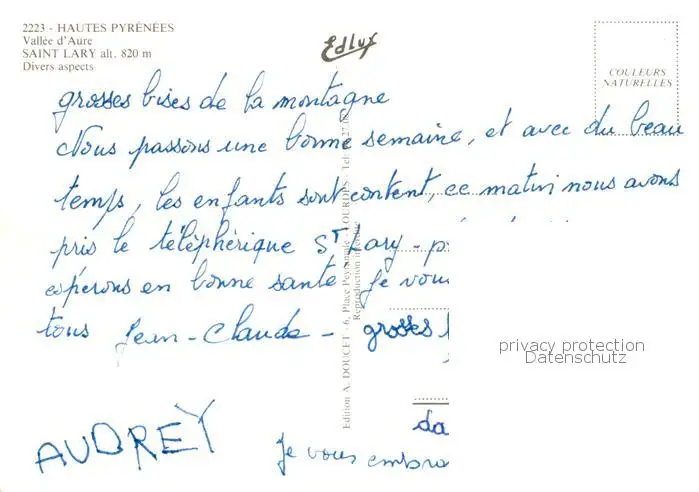 2223 - HAUTES PYRÉNÉES
Vallée d'Aure
SAINT LARY alt. 820 m
Divers aspects
Edlux
COULEURS
NATURELLES
grosses bises de la montagne
Nous passons une bonne semaine, et avec du beau
temps, les enfants sont content, ce matin nous avons
pris le téléphérique ST Lary - p
espérons en bonne santé. Je vou
tous Jean-Claude - grosses
privacy protection
Datenschutz
da
AUDREY
Je vous embra
Edition A. DOUCET - 6, Place Peyramale - LOURDES - Tél.
Reproduction interdite